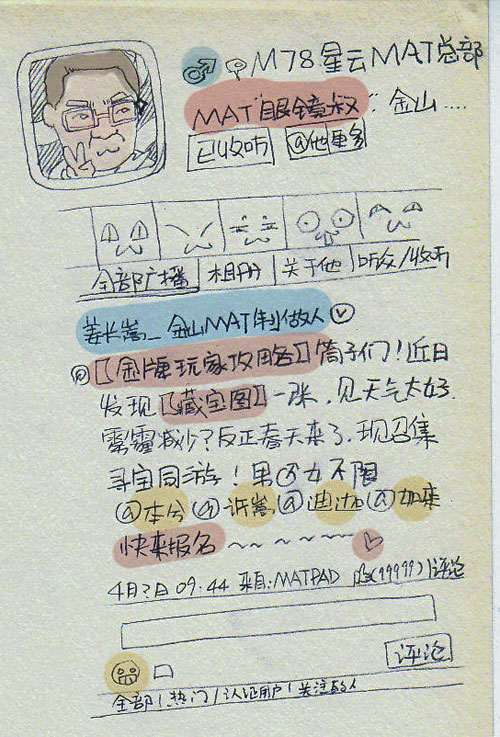 M78星云MAT总部
MAT"眼镜叔" 金山....
已收听 @他 更多
全部广播 相册 关于他 听众/收听
姜长嵩_金山MAT制做人
【金牌玩家攻略】筒子们!近日
发现【藏宝图】一张,见天气太好.
雾霾减少?反正春天来了.现召集
寻宝同游!男女不限
@本兮 @许嵩 @迪迦 @如来
快来报名~~~~~~
4月?日 09:44 来自:MATPAD (99999)|评论
评论
全部|热门/认证用户|关注的人